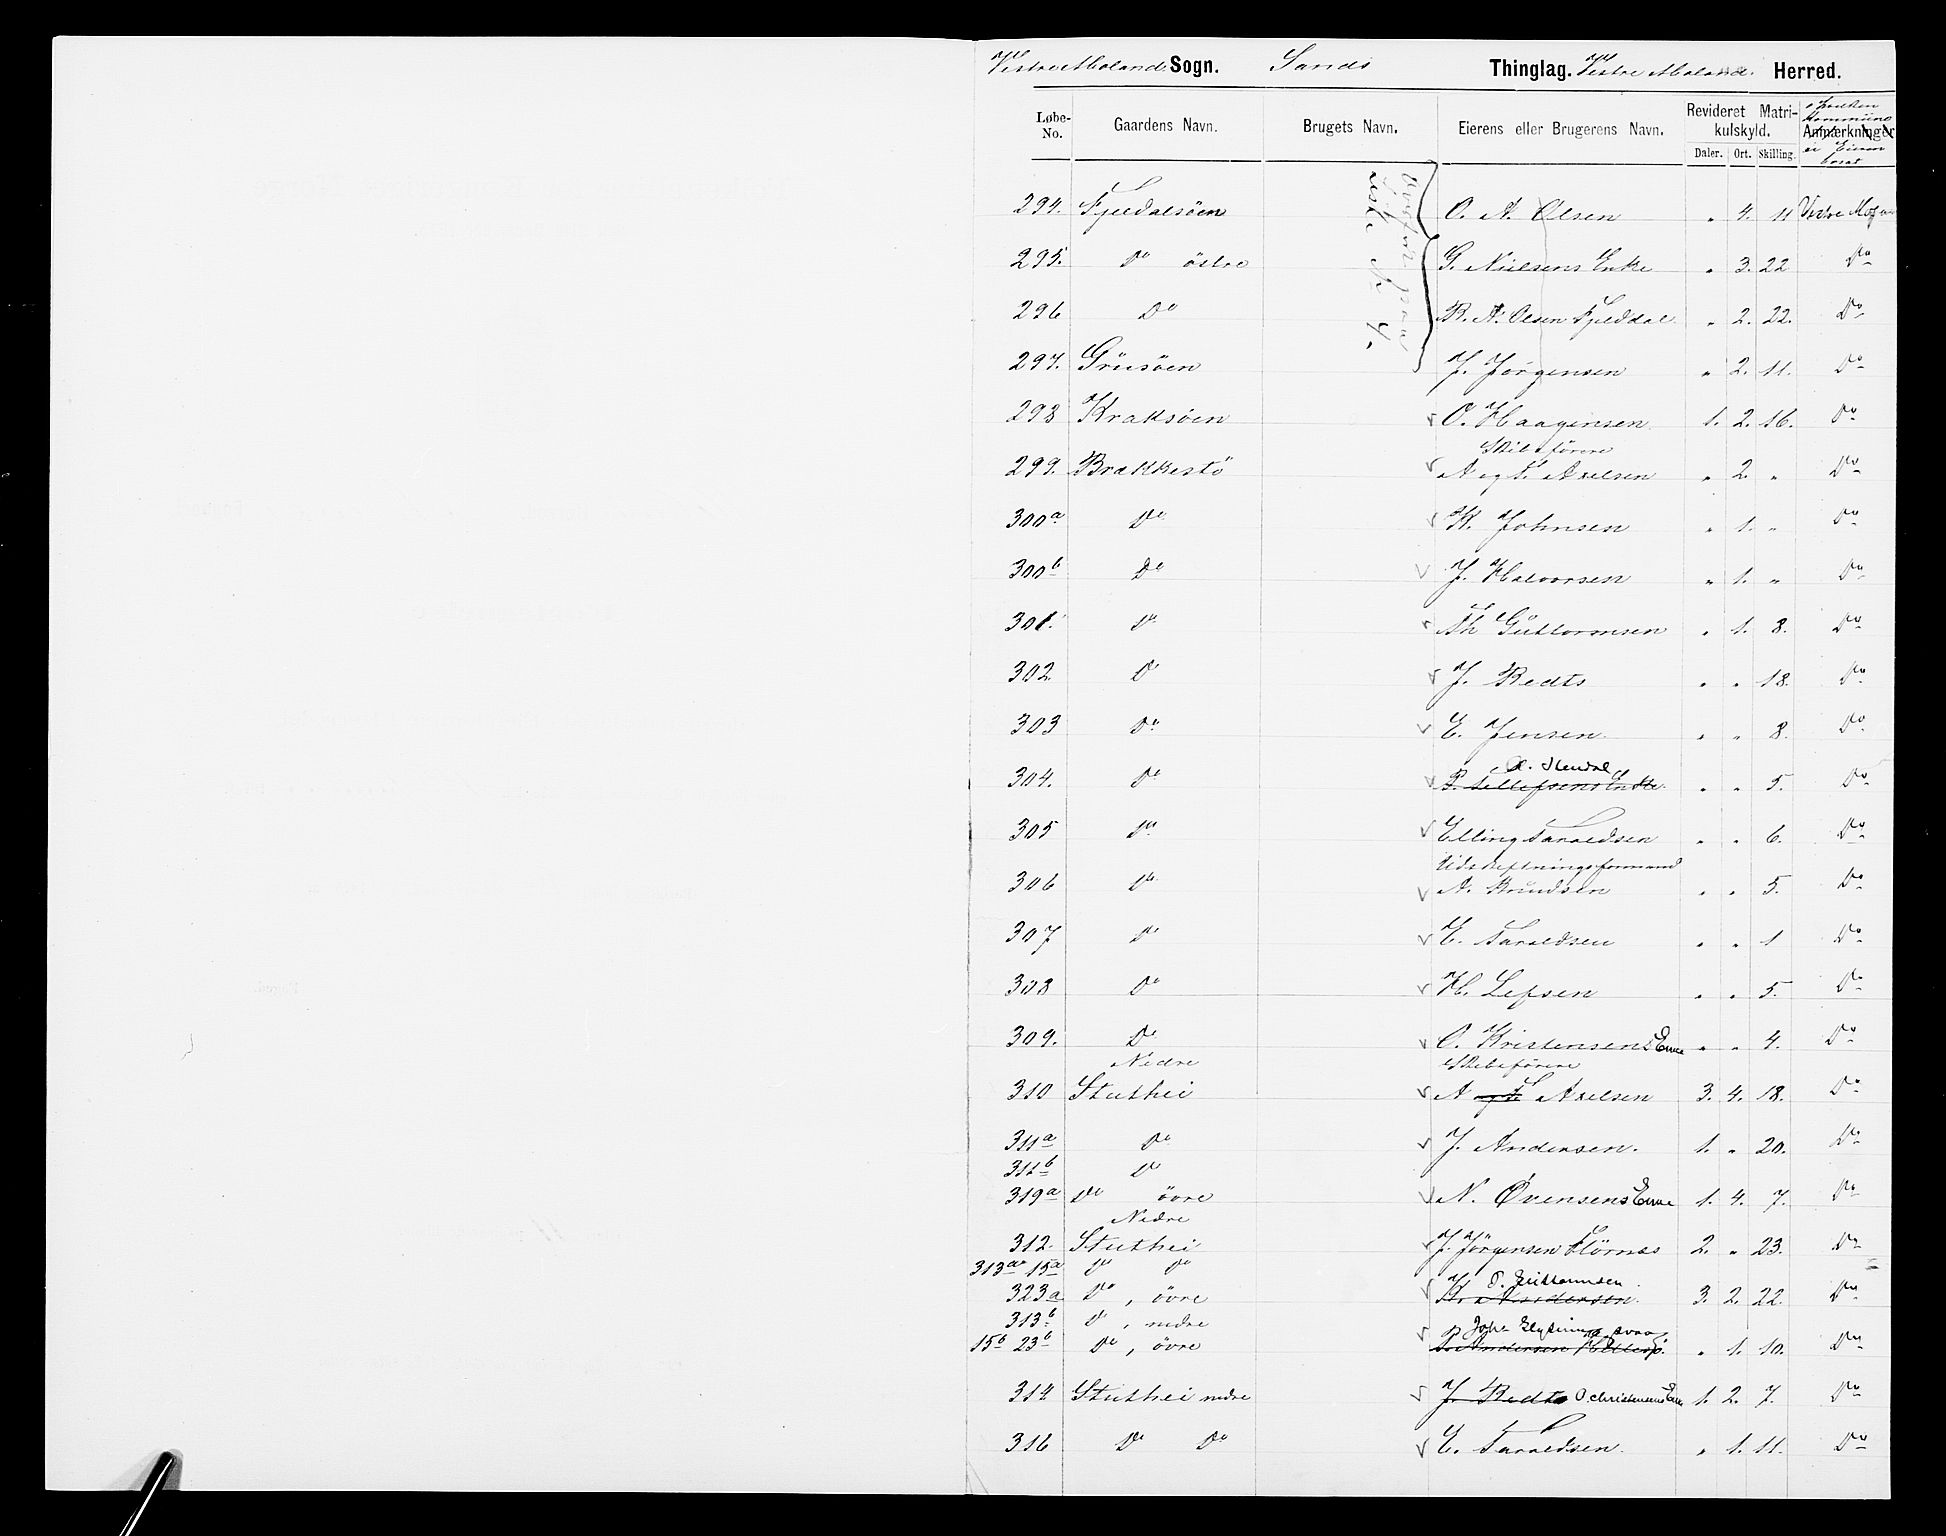 Vestre Moland Sogn. Sands Thinglag. Vestre Moland Herred.
Løbe-No. Gaardens Navn. Brugets Navn. Eierens eller Brugerens Navn. Revideret Matrikulskyld. Daler. Ort. Skilling. Anmærkninger
294. Fjeldalsöen O. N. Olsen " 4. 11 Vestre Mo
295. Do östre G. Nielsens Enke " 3. 22 Do
296 Do R. N. Olsen Fjelddal " 2. 22. Do
297. Grüsöen J. Jörgensen " 2. 11. Do
298 Kraksöen O. Haagensen 1. 2. 16. Do
Skibsförere
299. Brækkestö A og T. Axelsen " 2. " Do
300a Do K. Johnsen " 1. " Do
300b Do J. Halvorsen " 1. " Do
301. Do Th Güttormsen " 1. 8. Do
302. Do J. Redts " " 18. Do
303 Do E. Jensen " " 8. Do
304. Do P. Tellefsens Enke " " 5. Do
305 Do Elling Taraldsen " " 6. Do
Udskiftningsformand
306 Do N. Knudsen " " 5. Do
307 Do E. Taraldsen " " 1 Do
308 Do H. Lefsen " " 5. Do
309. Do O. Kristensens Enke " " 4. Do
Nedre Skibsförere
310 Stuthei A og T. Axelsen 3. 4. 18. Do
311a Do J. Andersen. 1. " 20. Do
311b Do
319a Do övre N. Øvensens Enke 1. 4. 7. Do
Nedre
312. Stuthei J. Jörgensen 2. " 23. Do
313a 15a Do Do
323a Do, övre K. Andersen. 3. 2. 22. Do
313b Do, nedre
15b 23b Do, övre Andersen " 1. 10. Do
314 Stuthei nedre J. Redts O. Christensens Enke 1. 2. 7. Do
316 Do Do E. Taraldsen " 1. 11. Do